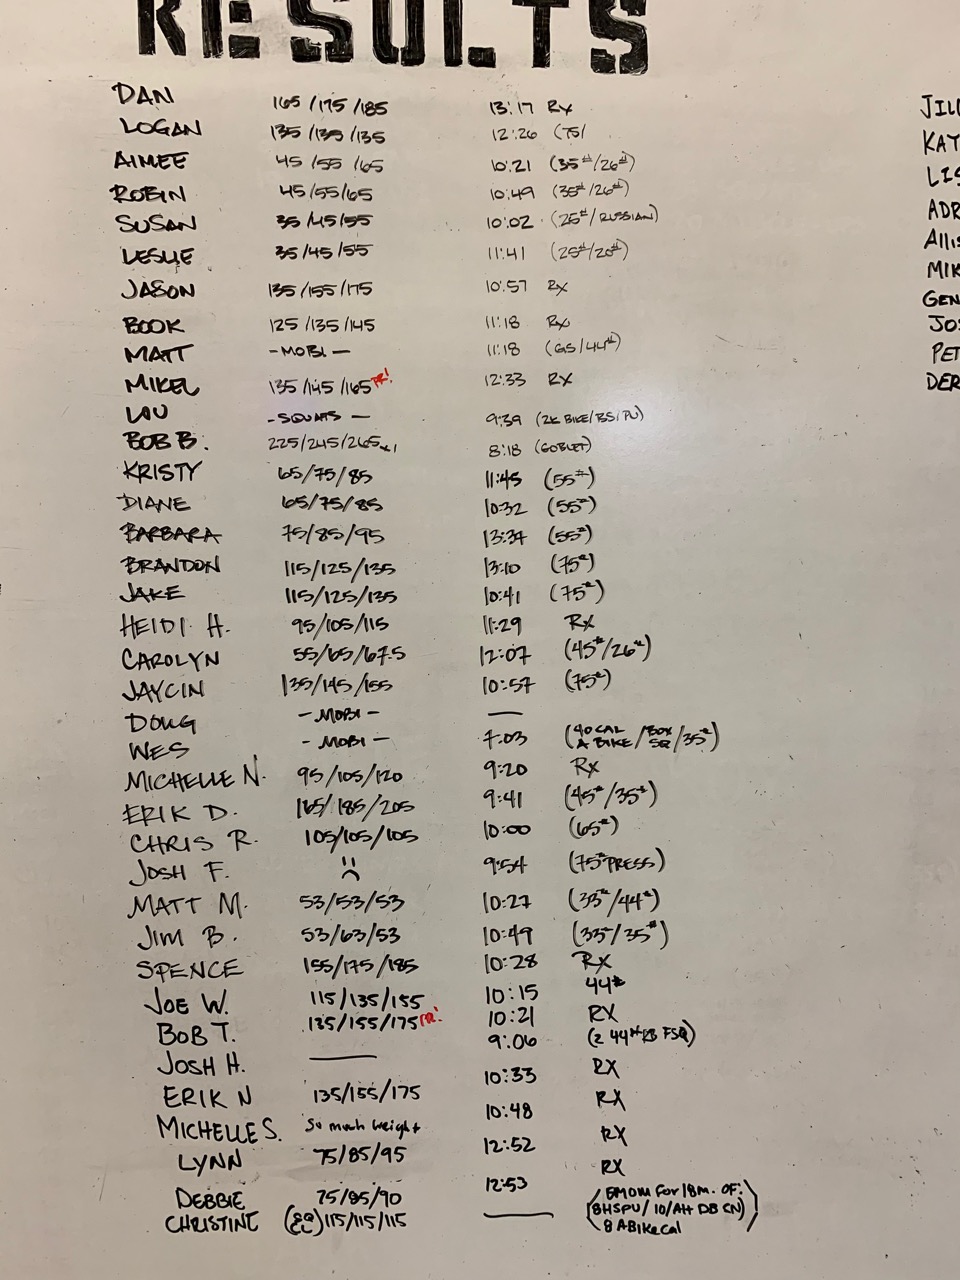 RESULTS
DAN 165/175/185 13:17 RX
LOGAN 135/135/135 12:26 (75/
AIMEE 45/55/65 10:21 (35#/26#)
ROBIN 45/55/65 10:49 (35#/26#)
SUSAN 35/45/55 10:02 (25#/RUSSIAN)
LESLIE 35/45/55 11:41 (25#/20#)
JASON 135/155/175 10:57 RX
BOOK 125/135/145 11:18 RX
MATT -MOBI- 11:18 (65/44#)
MIKEL 135/145/165 PR! 12:33 RX
LOU -SQUATS- 9:39 (2K BIKE/BS/PU)
BOB B. 225/245/265x1 8:18 (GOBLET)
KRISTY 65/75/85 11:45 (55#)
DIANE 65/75/85 10:32 (55#)
BARBARA 75/85/95 13:34 (55#)
BRANDON 115/125/135 13:10 (75#)
JAKE 115/125/135 10:41 (75#)
HEIDI H. 95/105/115 11:29 RX
CAROLYN 55/65/67.5 12:07 (45#/26#)
JAYCIN 135/145/155 10:57 (75#)
DOUG -MOBI- —
WES -MOBI- 7:03 (40 CAL A BIKE/BOX SR/35#)
MICHELLE N. 95/105/120 9:20 RX
ERIK D. 165/185/205 9:41 (45#/35#)
CHRIS R. 105/105/105 10:00 (65#)
JOSH F. 9:54 (75# PRESS)
MATT M. 53/53/53 10:27 (35#/44#)
JIM B. 53/63/53 10:49 (35/35#)
SPENCE 155/175/185 10:28 RX
JOE W. 115/135/155 10:15 44#
BOB T. 135/155/175 PR! 10:21 RX
JOSH H. — 9:06 (2 44# KB FSQ)
ERIK N 135/155/175 10:33 RX
MICHELLE S. So much weight 10:48 RX
LYNN 75/85/95 12:52 RX
DEBBIE 75/85/90 12:53 RX
CHRISTINE 115/115/115 — (EMOM FOR 18M. OF: 8HSPU/10/Alt DB CN) 8 A Bike Cal
JILL
KAT
LIS
ADR
Allis
MIK
GEN
JOS
PET
DER